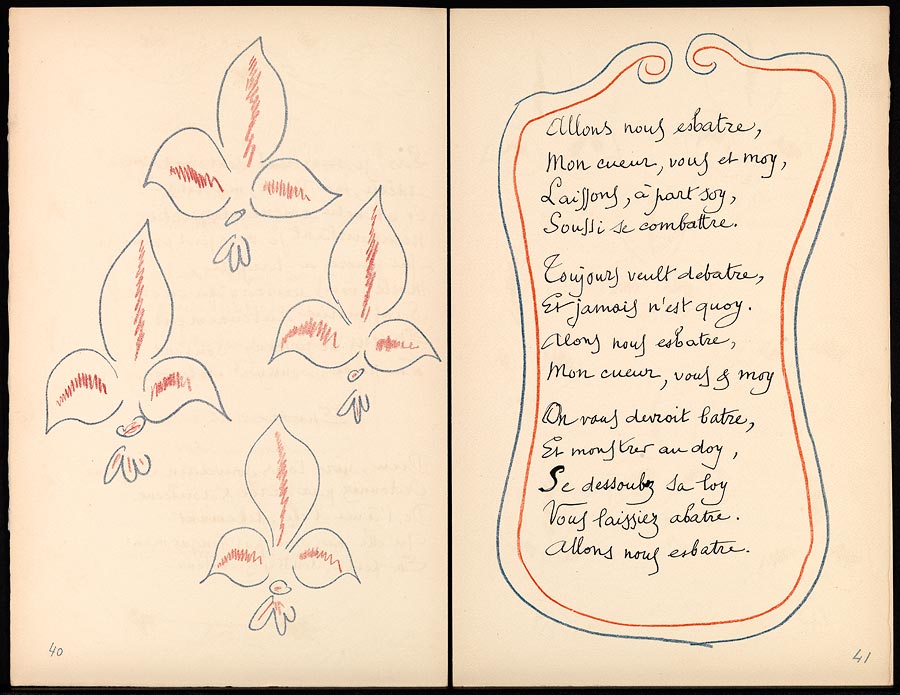 40
Allons nous esbatre,
Mon cueur, vous et moy,
Laissons, à part soy,
Soussi se combattre.
Toujours veult debatre,
Et jamais n'est quoy.
Alons nous esbatre,
Mon cueur, vous & moy
On vous devroit batre,
Et monstrer au doy,
Se dessoubz sa loy
Vous laissiez abatre.
Allons nous esbatre.
41